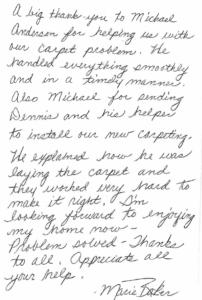 A big thank you to Michael
Anderson for helping us with
our carpet problem. He
handled everything smoothly
and in a timely manner.
Also Michael for sending
Dennis and his helper
to install our new carpeting.
He explained how he was
laying the carpet and
they worked very hard to
make it right. I'm
looking forward to enjoying
my home now -
Problem solved - Thanks
to all. Appreciate all
your help.
- Marie